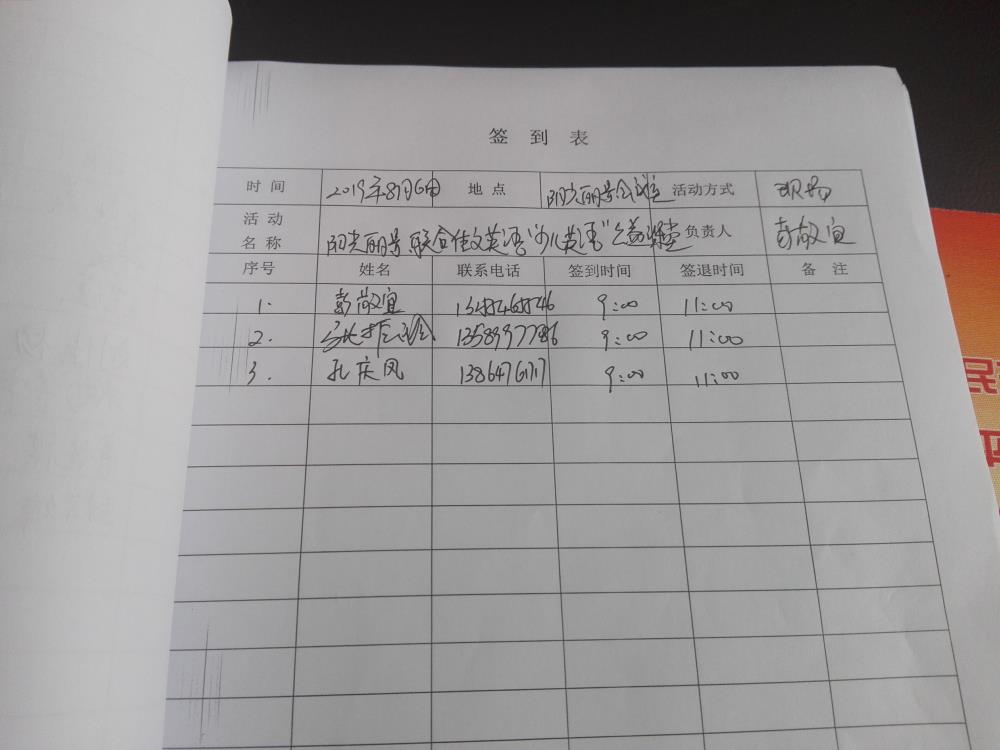 签到表
时间 2019年8月6日 地点 阳光丽景会议室 活动方式 现场
活动名称 阳光丽景联合佳文英语“少儿英语”公益课堂 负责人 彭敬宜
序号 姓名 联系电话 签到时间 签退时间 备注
1. 彭敬宜 9:00 11:00
2. 13589977286 9:00 11:00
3. 孔庆凤 13864761717 9:00 11:00
民